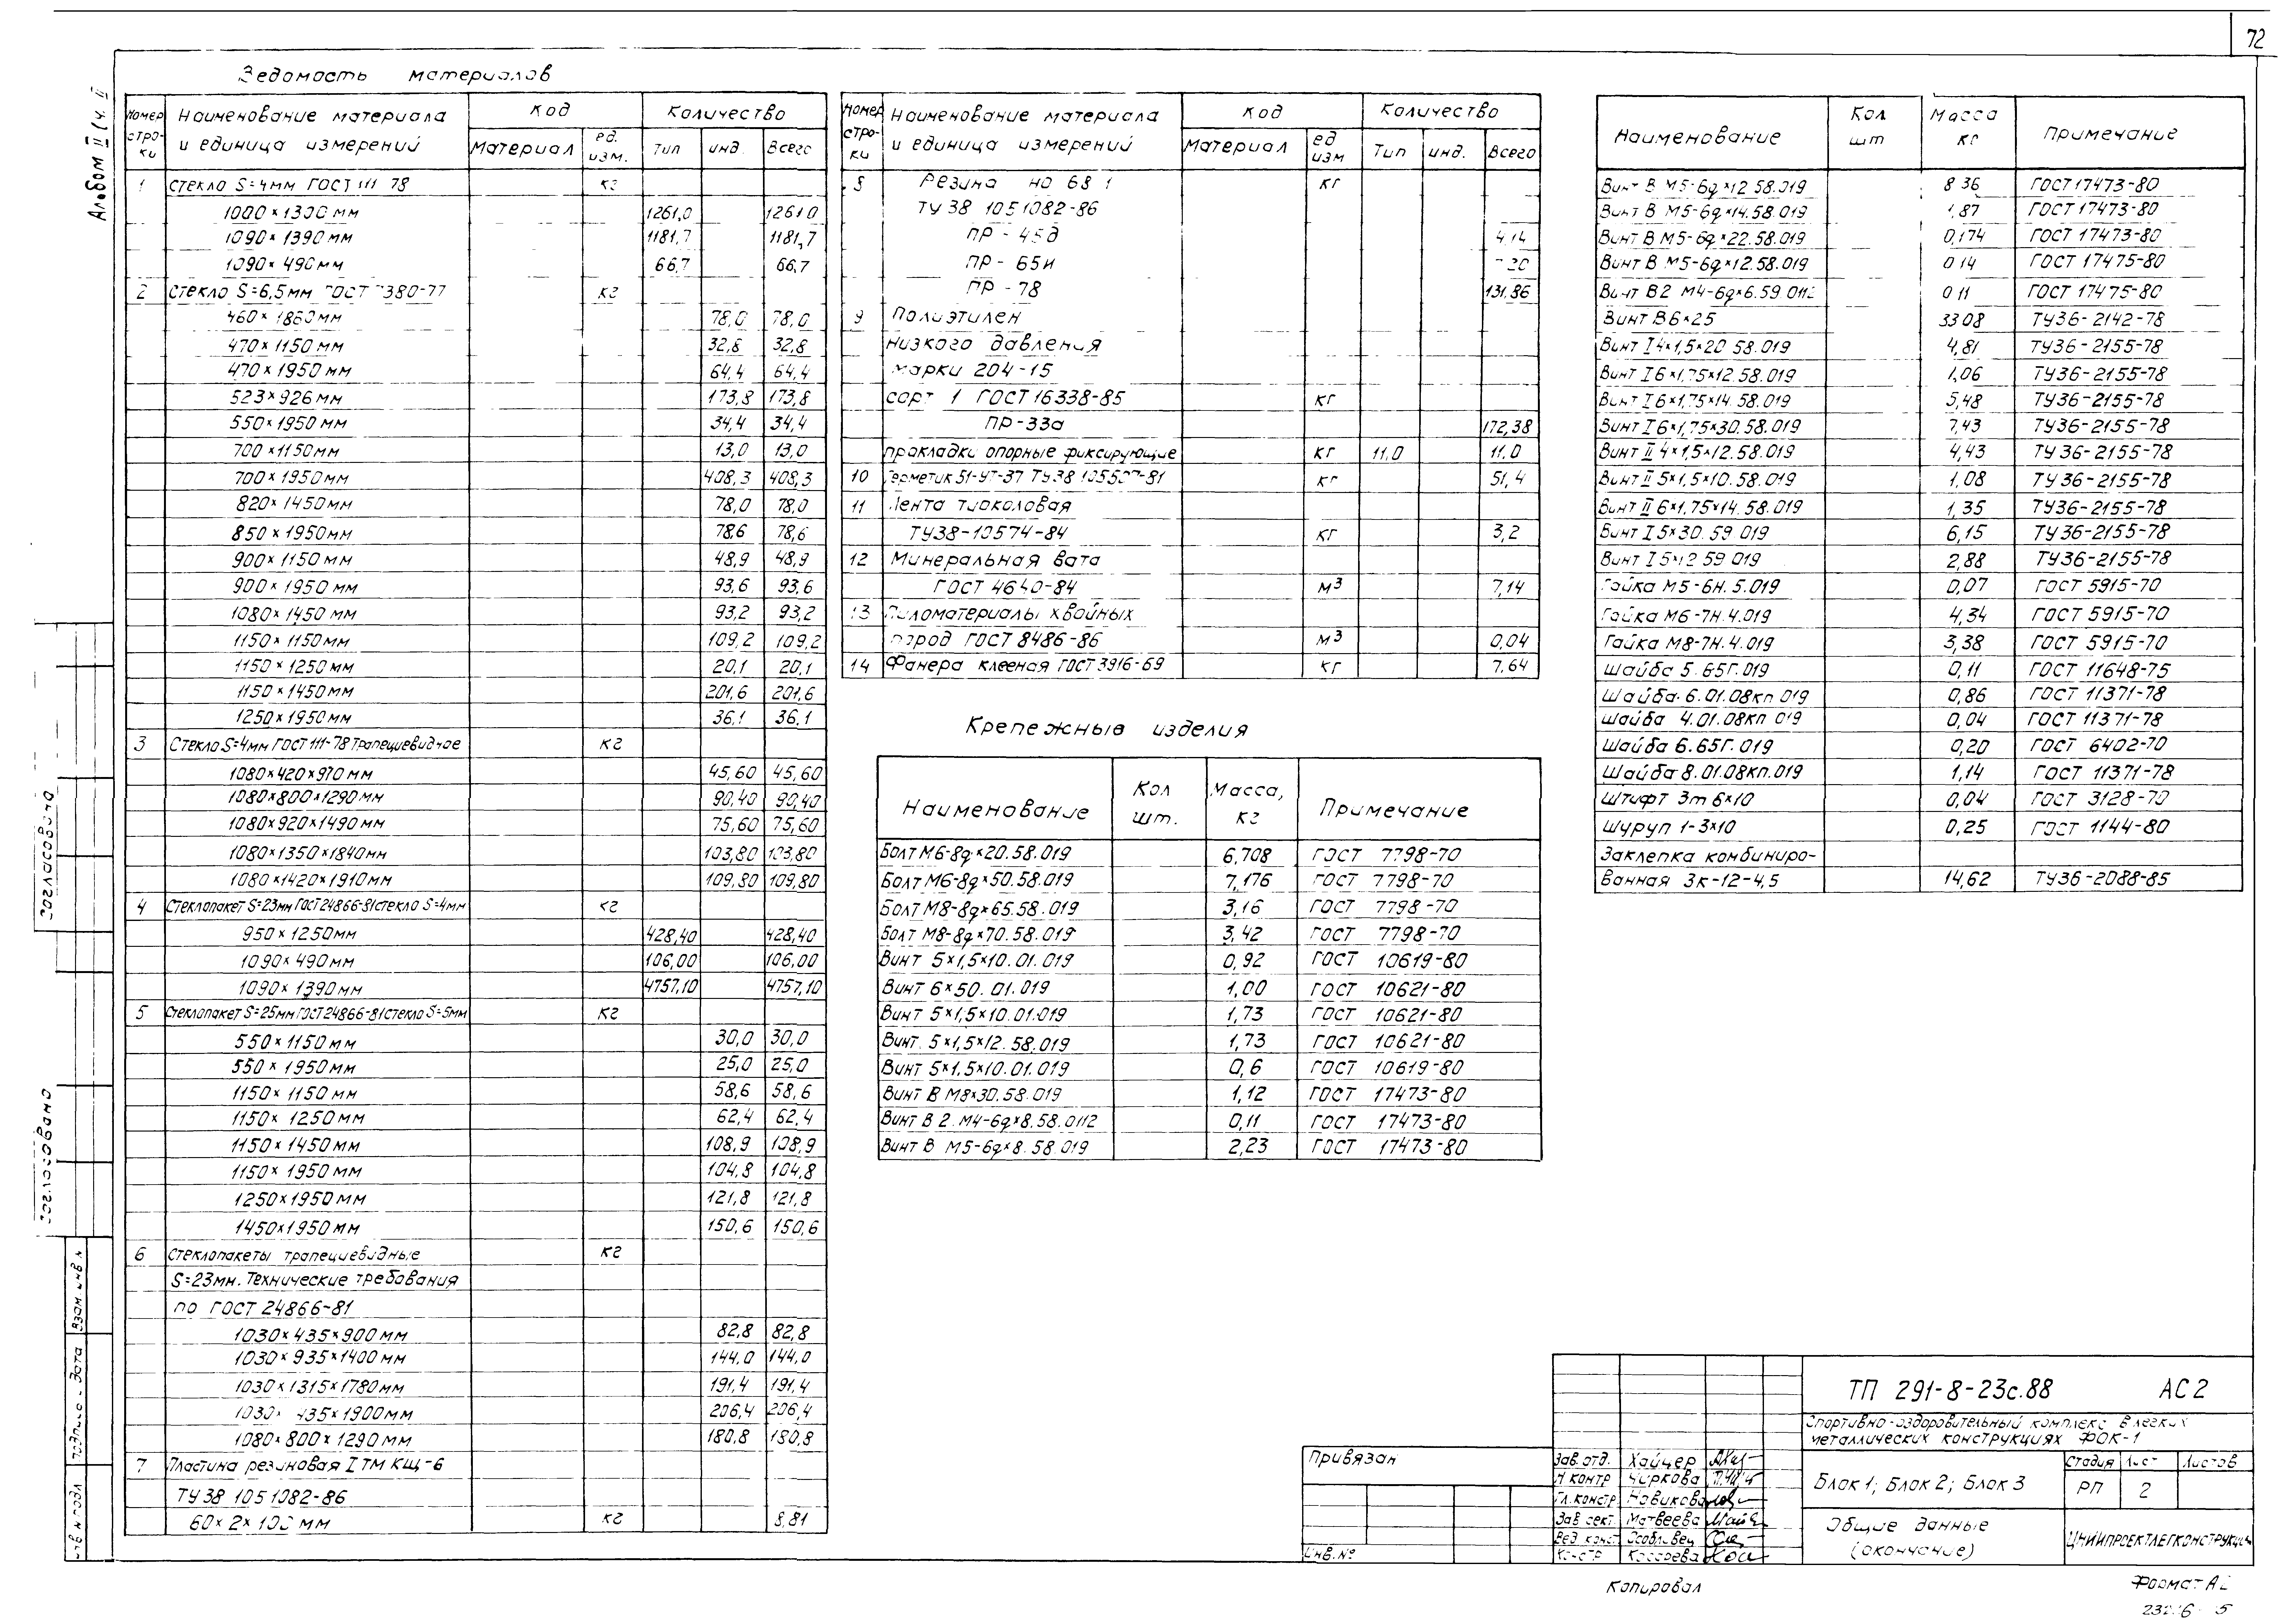 72
Альбом II (ч. II
Ведомость материалов
Номер строки | Наименование материала и единица измерений | Код | Количество
Материал | ед. изм. | Тип | инд. | Всего
1 Стекло S=4мм ГОСТ 111 78 кг
1000×1300 мм 1261,0 1261,0
1090×1390 мм 1181,7 1181,7
1090×490 мм 66,7 66,7
2 Стекло S=6,5мм ГОСТ 380-77 кг
460×1860 мм 78,0 78,0
470×1150 мм 32,8 32,8
470×1950 мм 64,4 64,4
523×926 мм 173,8 173,8
550×1950 мм 34,4 34,4
700×1150 мм 13,0 13,0
700×1950 мм 408,3 408,3
820×1450 мм 78,0 78,0
850×1950 мм 78,6 78,6
900×1150 мм 48,9 48,9
900×1950 мм 93,6 93,6
1080×1450 мм 93,2 93,2
1150×1150 мм 109,2 109,2
1150×1250 мм 20,1 20,1
1150×1450 мм 201,6 201,6
1250×1950 мм 36,1 36,1
3 Стекло S=4мм ГОСТ 111-78 трапециевидное кг
1080×420×970 мм 45,60 45,60
1080×800×1290 мм 90,40 90,40
1080×920×1490 мм 75,60 75,60
1080×1350×1840 мм 103,80 103,80
1080×1420×1910 мм 109,80 109,80
4 Стеклопакет S=23мм ГОСТ 24866-81 стекло S=4мм кг
950×1250 мм 428,40 428,40
1090×490 мм 106,00 106,00
1090×1390 мм 4757,10 4757,10
5 Стеклопакет S=25мм ГОСТ 24866-81 стекло S=5мм кг
550×1150 мм 30,0 30,0
550×1950 мм 25,0 25,0
1150×1150 мм 58,6 58,6
1150×1250 мм 62,4 62,4
1150×1450 мм 108,9 108,9
1150×1950 мм 104,8 104,8
1250×1950 мм 121,8 121,8
1450×1950 мм 150,6 150,6
6 Стеклопакеты трапециевидные кг
S=23мм. Технические требования
по ГОСТ 24866-81
1030×435×900 мм 82,8 82,8
1030×935×1400 мм 144,0 144,0
1030×1315×1780 мм 191,4 191,4
1030× 435×1900 мм 206,4 206,4
1080×800×1290 мм 180,8 180,8
7 Пластина резиновая I ТМКЩ-6
ТУ 38 1051082-86
60×2× мм кг 8,81
Номер строки | Наименование материала и единица измерений | Код | Количество
Материал | ед изм | Тип | инд. | Всего
8 Резина но 68 1 кг
ТУ 38 1051082-86
ПР-45д 4,14
ПР-65и
ПР-78 131,86
9 Полиэтилен
низкого давления
марки 204-15
сорт 1 ГОСТ 16338-85 кг
ПР-33а 172,38
прокладки опорные фиксирующие кг 11,0 11,0
10 Герметик 51-УТ-37 ТУ38 -81 кг 51,4
11 Лента тиоколовая
ТУ38-10574-84 кг 3,2
12 Минеральная вата
ГОСТ 4640-84 м³ 7,14
13 Пиломатериалы хвойных
пород ГОСТ 8486-86 м³ 0,04
14 Фанера клееная ГОСТ 3916-69 кг 7,64
Крепежные изделия
Наименование | Кол шт. | Масса, кг | Примечание
Болт М6-8g×20.58.019 6,708 ГОСТ 7798-70
Болт М6-8g×50.58.019 7,176 ГОСТ 7798-70
Болт М8-8g×65.58.019 3,16 ГОСТ 7798-70
Болт М8-8g×70.58.019 3,42 ГОСТ 7798-70
Винт 5×1,5×10.01.019 0,92 ГОСТ 10619-80
Винт 6×50.01.019 1,00 ГОСТ 10621-80
Винт 5×1,5×10.01.019 1,73 ГОСТ 10621-80
Винт. 5×1,5×12.58.019 1,73 ГОСТ 10621-80
Винт 5×1.5×10.01.019 0,6 ГОСТ 10619-80
Винт В М8×30.58.019 1,12 ГОСТ 17473-80
Винт В 2. М4-6g×8.58.0112 0,11 ГОСТ 17473-80
Винт В М5-6g×8.58.019 2,23 ГОСТ 17473-80
Наименование | Кол шт | Масса кг | Примечание
Винт В М5-6g×12 58.019 8 36 ГОСТ 17473-80
Винт В М5-6g×14.58.019 1,87 ГОСТ 17473-80
Винт В М5-6g×22.58.019 0,174 ГОСТ 17473-80
Винт В М5-6g×12.58.019 0 14 ГОСТ 17475-80
Винт В2 М4-6g×6.59.0112 0 11 ГОСТ 17475-80
Винт В6×25 33 08 ТУ36-2142-78
Винт I 4×1,5×20 58.019 4,81 ТУ36-2155-78
Винт I 6×1,75×12.58.019 1,06 ТУ36-2155-78
Винт I 6×1,75×14.58.019 5,48 ТУ36-2155-78
Винт I 6×1,75×30.58.019 7,43 ТУ36-2155-78
Винт II 4×1,5×12.58.019 4,43 ТУ36-2155-78
Винт II 5×1,5×10.58.019 1,08 ТУ36-2155-78
Винт II 6×1,75×14.58.019 1,35 ТУ36-2155-78
Винт I 5×30.59 019 6,15 ТУ36-2155-78
Винт I 5×12 59 019 2,88 ТУ36-2155-78
Гайка М5-6Н.5.019 0,07 ГОСТ 5915-70
Гайка М6-7Н.4.019 4,34 ГОСТ 5915-70
Гайка М8-7Н.4.019 3,38 ГОСТ 5915-70
Шайба 5.65Г.019 0,11 ГОСТ 11648-75
Шайба 6.01.08кп 019 0,86 ГОСТ 11371-78
Шайба 4.01.08кп 019 0,04 ГОСТ 11371-78
Шайба 6.65Г.019 0,20 ГОСТ 6402-70
Шайба 8.01.08кп.019 1,14 ГОСТ 11371-78
Штифт 3m6×10 0,04 ГОСТ 3128-70
Шуруп 1-3×10 0,25 ГОСТ 1144-80
Заклепка комбиниро-
ванная ЗК-12-4,5 14,62 ТУ36-2088-85
Согласовано
Согласовано
Взам. инв. №
Подпись и дата
Инв № подл
Привязан
Инв. №
Зав. отд. Хайцер
Н контр Чиркова
Гл. констр Новикова
Зав сект. Матвеева
Вед. конст Особливец
Констр
ТП 291-8-23с.88 АС2
Спортивно-оздоровительный комплекс в легких
металлических конструкциях ФОК-1
Блок 1; Блок 2; Блок 3
Стадия Лист Листов
РП 2
Общие данные
(окончание)
ЦНИИПРОЕКТЛЕГКОНСТРУКЦИЯ
Копировал
Формат А2